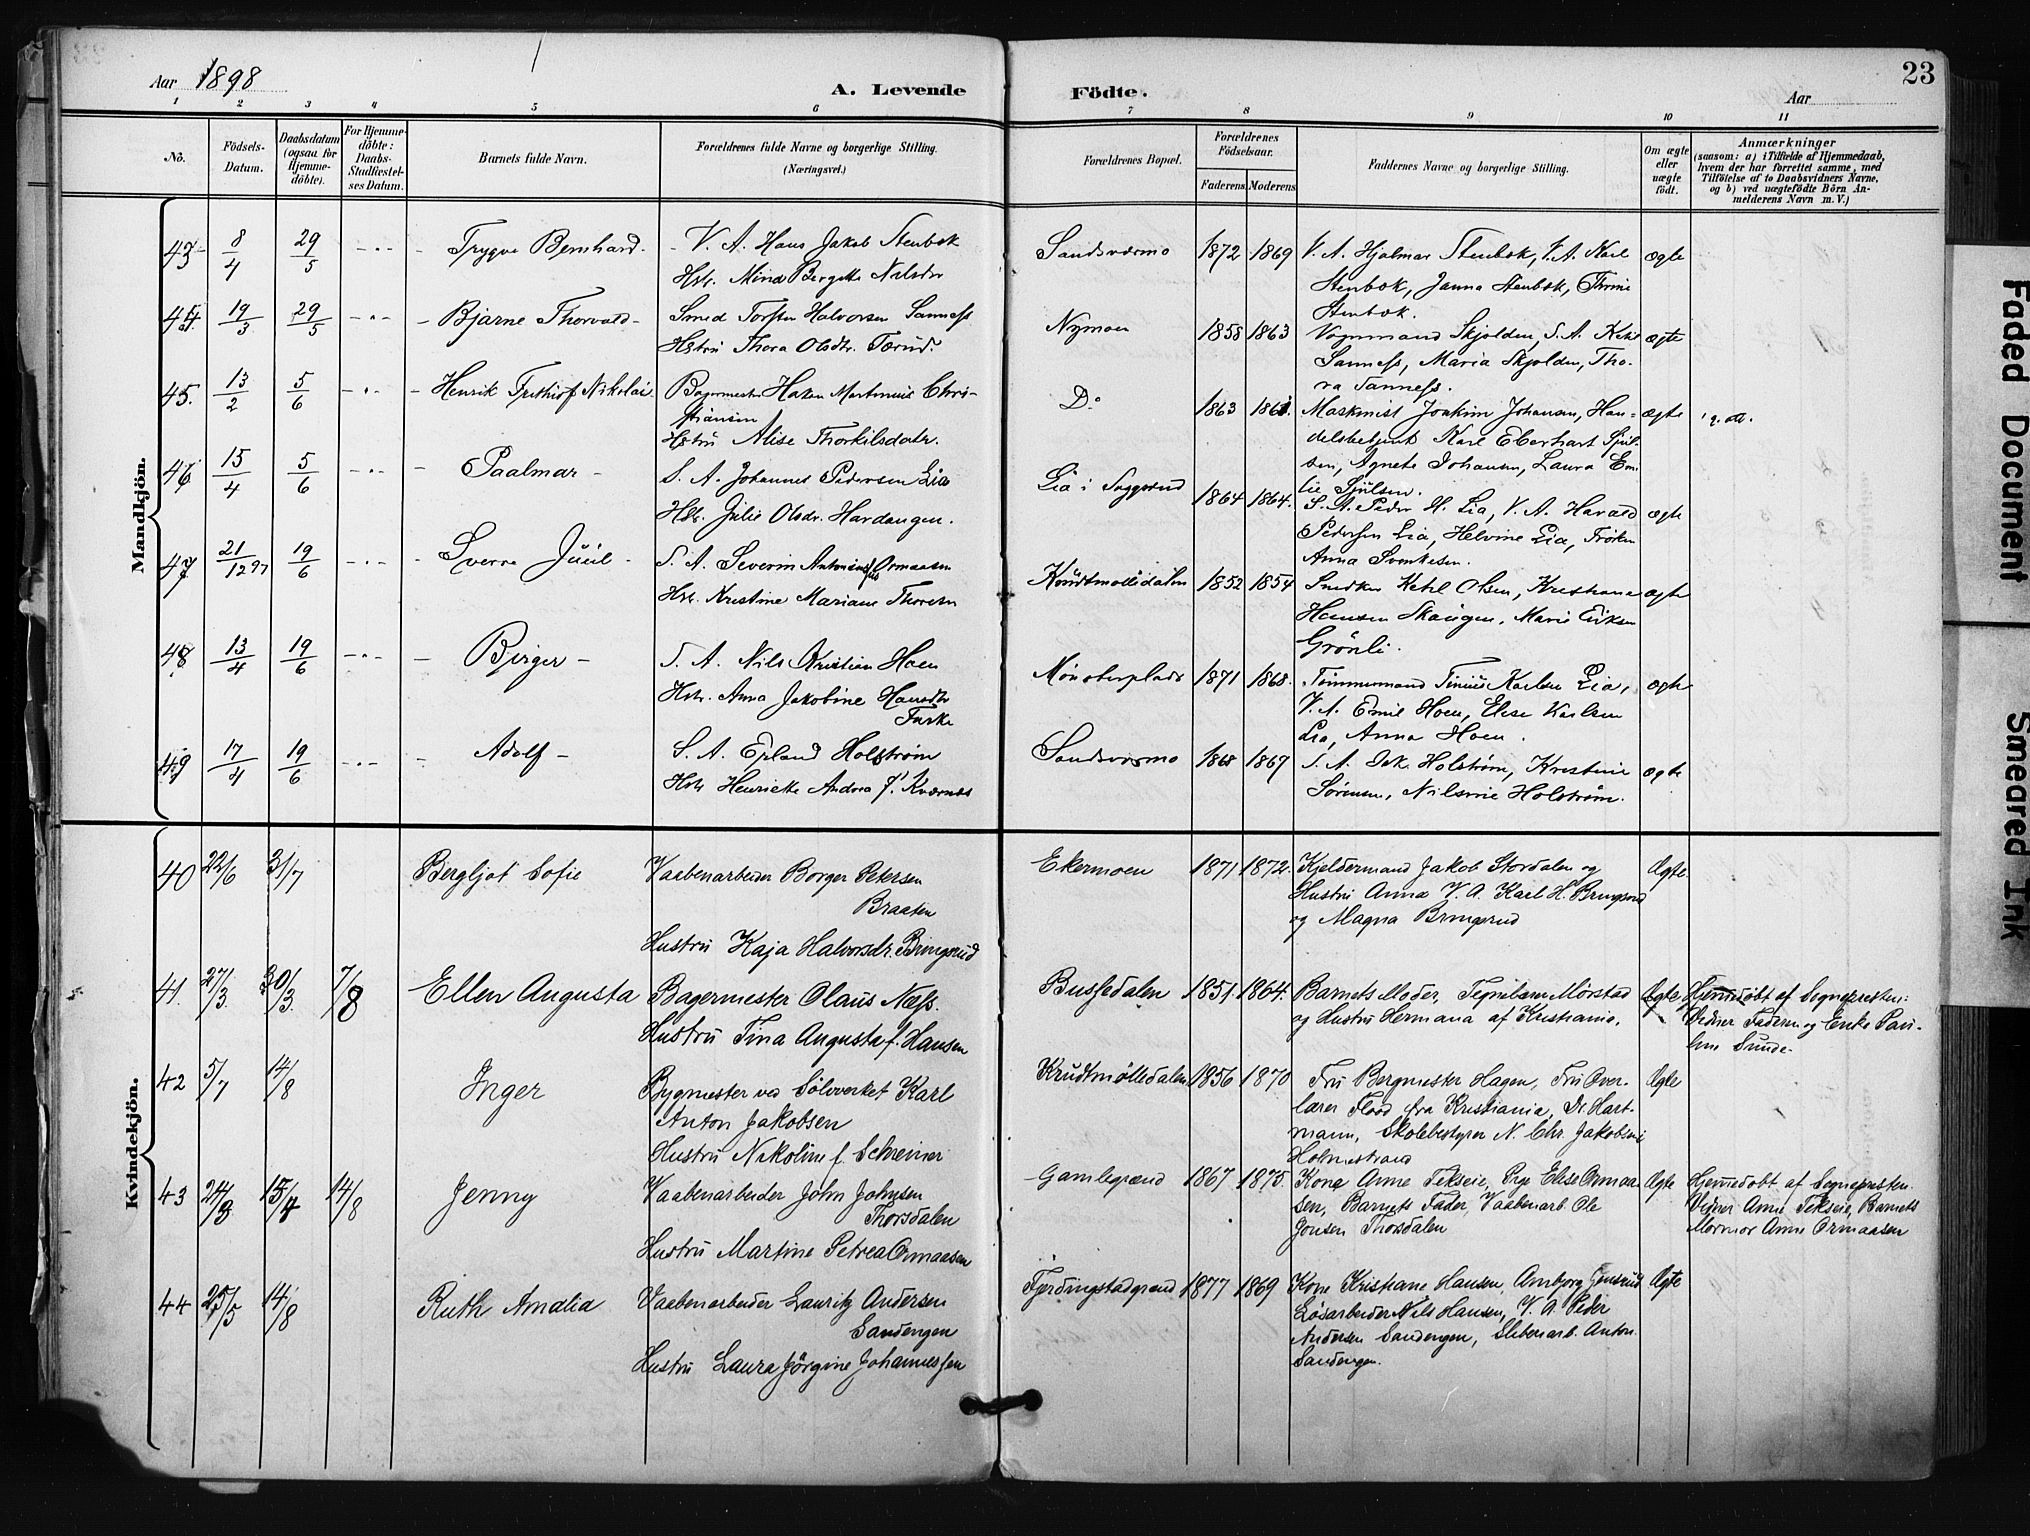 Aar 1898
A. Levende Födte.
Aar
23
1 2 3 4 5 6 7 8 9 10 11
No.
Födsels-Datum.
Daabsdatum (ogsaa for Hjemme-döbte).
For Hjemme-döbte: Daabs-Stadfæstel-ses Datum.
Barnets fulde Navn.
Forældrenes fulde Navne og borgerlige Stilling. (Næringsvei.)
Forældrenes Bopæl.
Forældrenes Födselsaar.
Faderens. Moderens.
Faddernes Navne og borgerlige Stilling.
Om ægte eller uægte födt.
Anmærkninger
(saasom: a) i Tilfælde af Hjemmedaab, hvem der har forrettet samme, med Tilföielse af to Daabsvidners Navne, og b) ved uægtefödte Börn An-melderens Navn m. V.)
Mandkjön.
43 8/4 29/5 - " - Trygve Bernhard. V. A. Hans Jakob Stenbok
Hstr. Mina Bergitte Nilsdtr
Sandsværmo 1872 1869 V. A. Hjalmar Stenbok, V. A. Karl
Stenbok, Janna Stenbok, Thrine
Stenbok.
ægte
44. 19/3 29/5 - " - Bjarne Thorvald Smed Torsten Halvorsen Sanness
Hstru Thora Olsdtr. Tørud.
Nymoen 1858 1863 Vognmand Skjolden, S. A. Ketil
Sanness, Maria Skjolden, Tho-
ra Sanness.
ægte
45. 13/2 5/6 - " - Henrik Frithiof Nikolai Bagermester Haken Martinius Chris-
thiansen
Hstru Alise Thorkilsdatr.
Do 1863 Maskinist Joakim Johansen, Han-
delsbetjent Karl Eberhart
Agnete Johansen, Laura Emi
lie
ægte
46 15/4 5/6 - " - Paalmar - S. A. Johannes Pedersen Lia
Hstr. Julie Olsdr. Hardangen.
Lia i Saggrend 1864 1864. S. A. Peder H. Lia, V. A. Harald
Pedersen Lia, Helvine Lia, Frøken
Anna Svenkesen.
ægte
47 21/12 97 19/6 - " - Sverre Juul - S. A. Severin Antonius Ormaasen
Hstr. Kristine Mariane Thoresen
Krudtmølledalen 1852 1854 Snedker Ketil Olsen, Kristiane
Hansen Skaugen, Marie Eriksen
Grönli.
ægte
48 13/4 19/6 - " - Birger - S. A. Nils Kristian Hoen
Hstr. Anna Jakobine Hansdtr
Mønsterplads 1871 1868. Tømmermand Tinius Karlsen Lia,
V. A. Emil Hoen, Elese Karlsen
Lia, Anna Hoen.
ægte
49 17/4 19/6 - " - Adolf - S. A. Erland Holstrøm
Hstr Henriette Andrea f. Kværnes
Sandsværmo 1868 1867 S. A. Jak. Holstrøm, Kristine
Sørensen, Nilsine Holstrøm.
ægte
Kvindekjön.
40 22/6 31/7 Bergljot Sofie Vaabenarbeider Borger Petersen
Braaten
Hustru Kaja Halvorsdr. Bringsrud
Ekermoen 1871 1872. Kjeldermand Jakob Stordalen og
Hustru Anna V. A. Karl H. Bringsrud
og Magna Bringsrud
Ægte
41. 27/3 30/3 7/8 Ellen Augusta Bagermester Olaus Næss.
Hustru Tina Augusta f. Hansen
Bussedalen 1851. 1864. Barnets Moder, Mørstad
og Hustru Hermana af Kristiania.
Ægte Hjemmedøbt af Sognepresten:
Vidner Faderen og Enke Pau-
line Sunde-
42 5/7 14/8 Inger Bygmester ved Sölvverket Karl
Anton Jakobsen
Hustru Nikoline f. Schreiner
Krudtmölledalen 1856 1870 Fru Bergmester Hagen, Fru Over-
lærer Flood fra Kristiania, Dr. Hart-
mann, Skolebestyrer N. Chr. Jakobsen
Holmestrand
Ægte
43 24/3 15/4 14/8 Jenny Vaabenarbeider John Johnsen
Thorsdalen
Hustru Martine Petrea Ormaasen
Gamlegrænd 1867 1875. Kone Anne Tekseie, Pige Elise Ormaa-
sen, Barnets Fader, Vaabenarb. Ole
Jonsen Thorsdalen
Ægte Hjemmedøbt af Sognepresten.
Vidner Anne Tekseie, Barnets
Mormor Anne Ormaasen
44 25/5 14/8 Ruth Amalia Vaabenarbeider Lauritz Andersen
Sandengen
Hustru Laura Jörgine Johannessen
Fjerdingstadgrænd 1877 1869 Kone Kristiane Hansen, Anbjorg Jonsrud
Løsarbeider Nils Hansen, V. A. Peder
Andersen Sandengen, Slibenarb. Anton
Sandengen.
Ægte
Faded Document
Smeared Ink